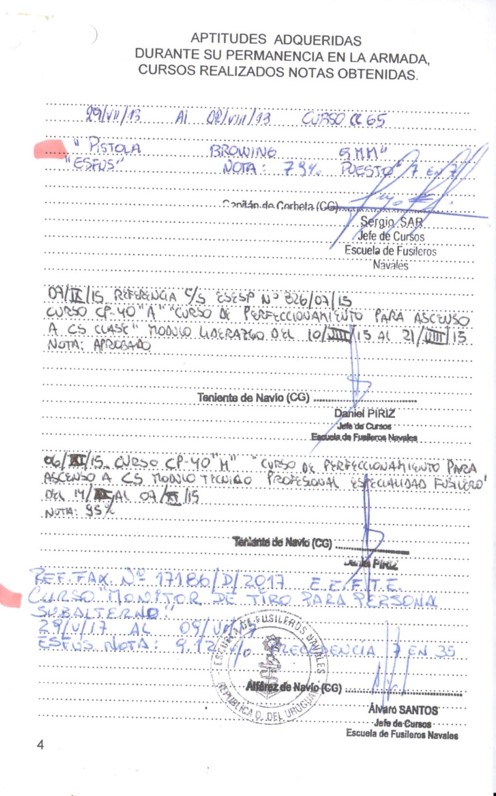 APTITUDES ADQUERIDAS
DURANTE SU PERMANENCIA EN LA ARMADA,
CURSOS REALIZADOS NOTAS OBTENIDAS.
29/VII/13 Al 02/VIII/13 CURSO CC 65
"PISTOLA BROWING 9MM"
"ESFUS" NOTA: 79%. PUESTO 7 EN 7
Capitán de Corbeta (CG)
Sergio SAR
Jefe de Cursos
Escuela de Fusileros
Navales
07/IX/15 REFERENCIA C/S ESESP Nº 226/07/15
CURSO CP-40 "A" "CURSO DE PERFECCIONAMIENTO PARA ASCENSO
A CS CLASE" MODULO LIDERAZGO DEL 10/VIII/15 AL 21/VIII/15
NOTA: APROBADO
Teniente de Navío (CG)
Daniel PIRIZ
Jefe de Cursos
Escuela de Fusileros Navales
CURSO CP-40 "M" "CURSO DE PERFECCIONAMIENTO PARA
ASCENSO A CS MODULO TECNICO PROFESIONAL ESPECIALIDAD FUSILERO"
NOTA: 95%
Teniente de Navío (CG)
Daniel PIRIZ
REF. FAX. Nº 17186/D/2017 E.E.F.T.E.
CURSO "MONITOR DE TIRO PARA PERSONAL
SUBALTERNO"
29/V/17 AL
ESFUS NOTA: 7 EN 35
ESCUELA DE FUSILEROS NAVALES
REPUBLICA O. DEL URUGUAY
Alférez de Navío (CG)
Álvaro SANTOS
Jefe de Cursos
Escuela de Fusileros Navales
4